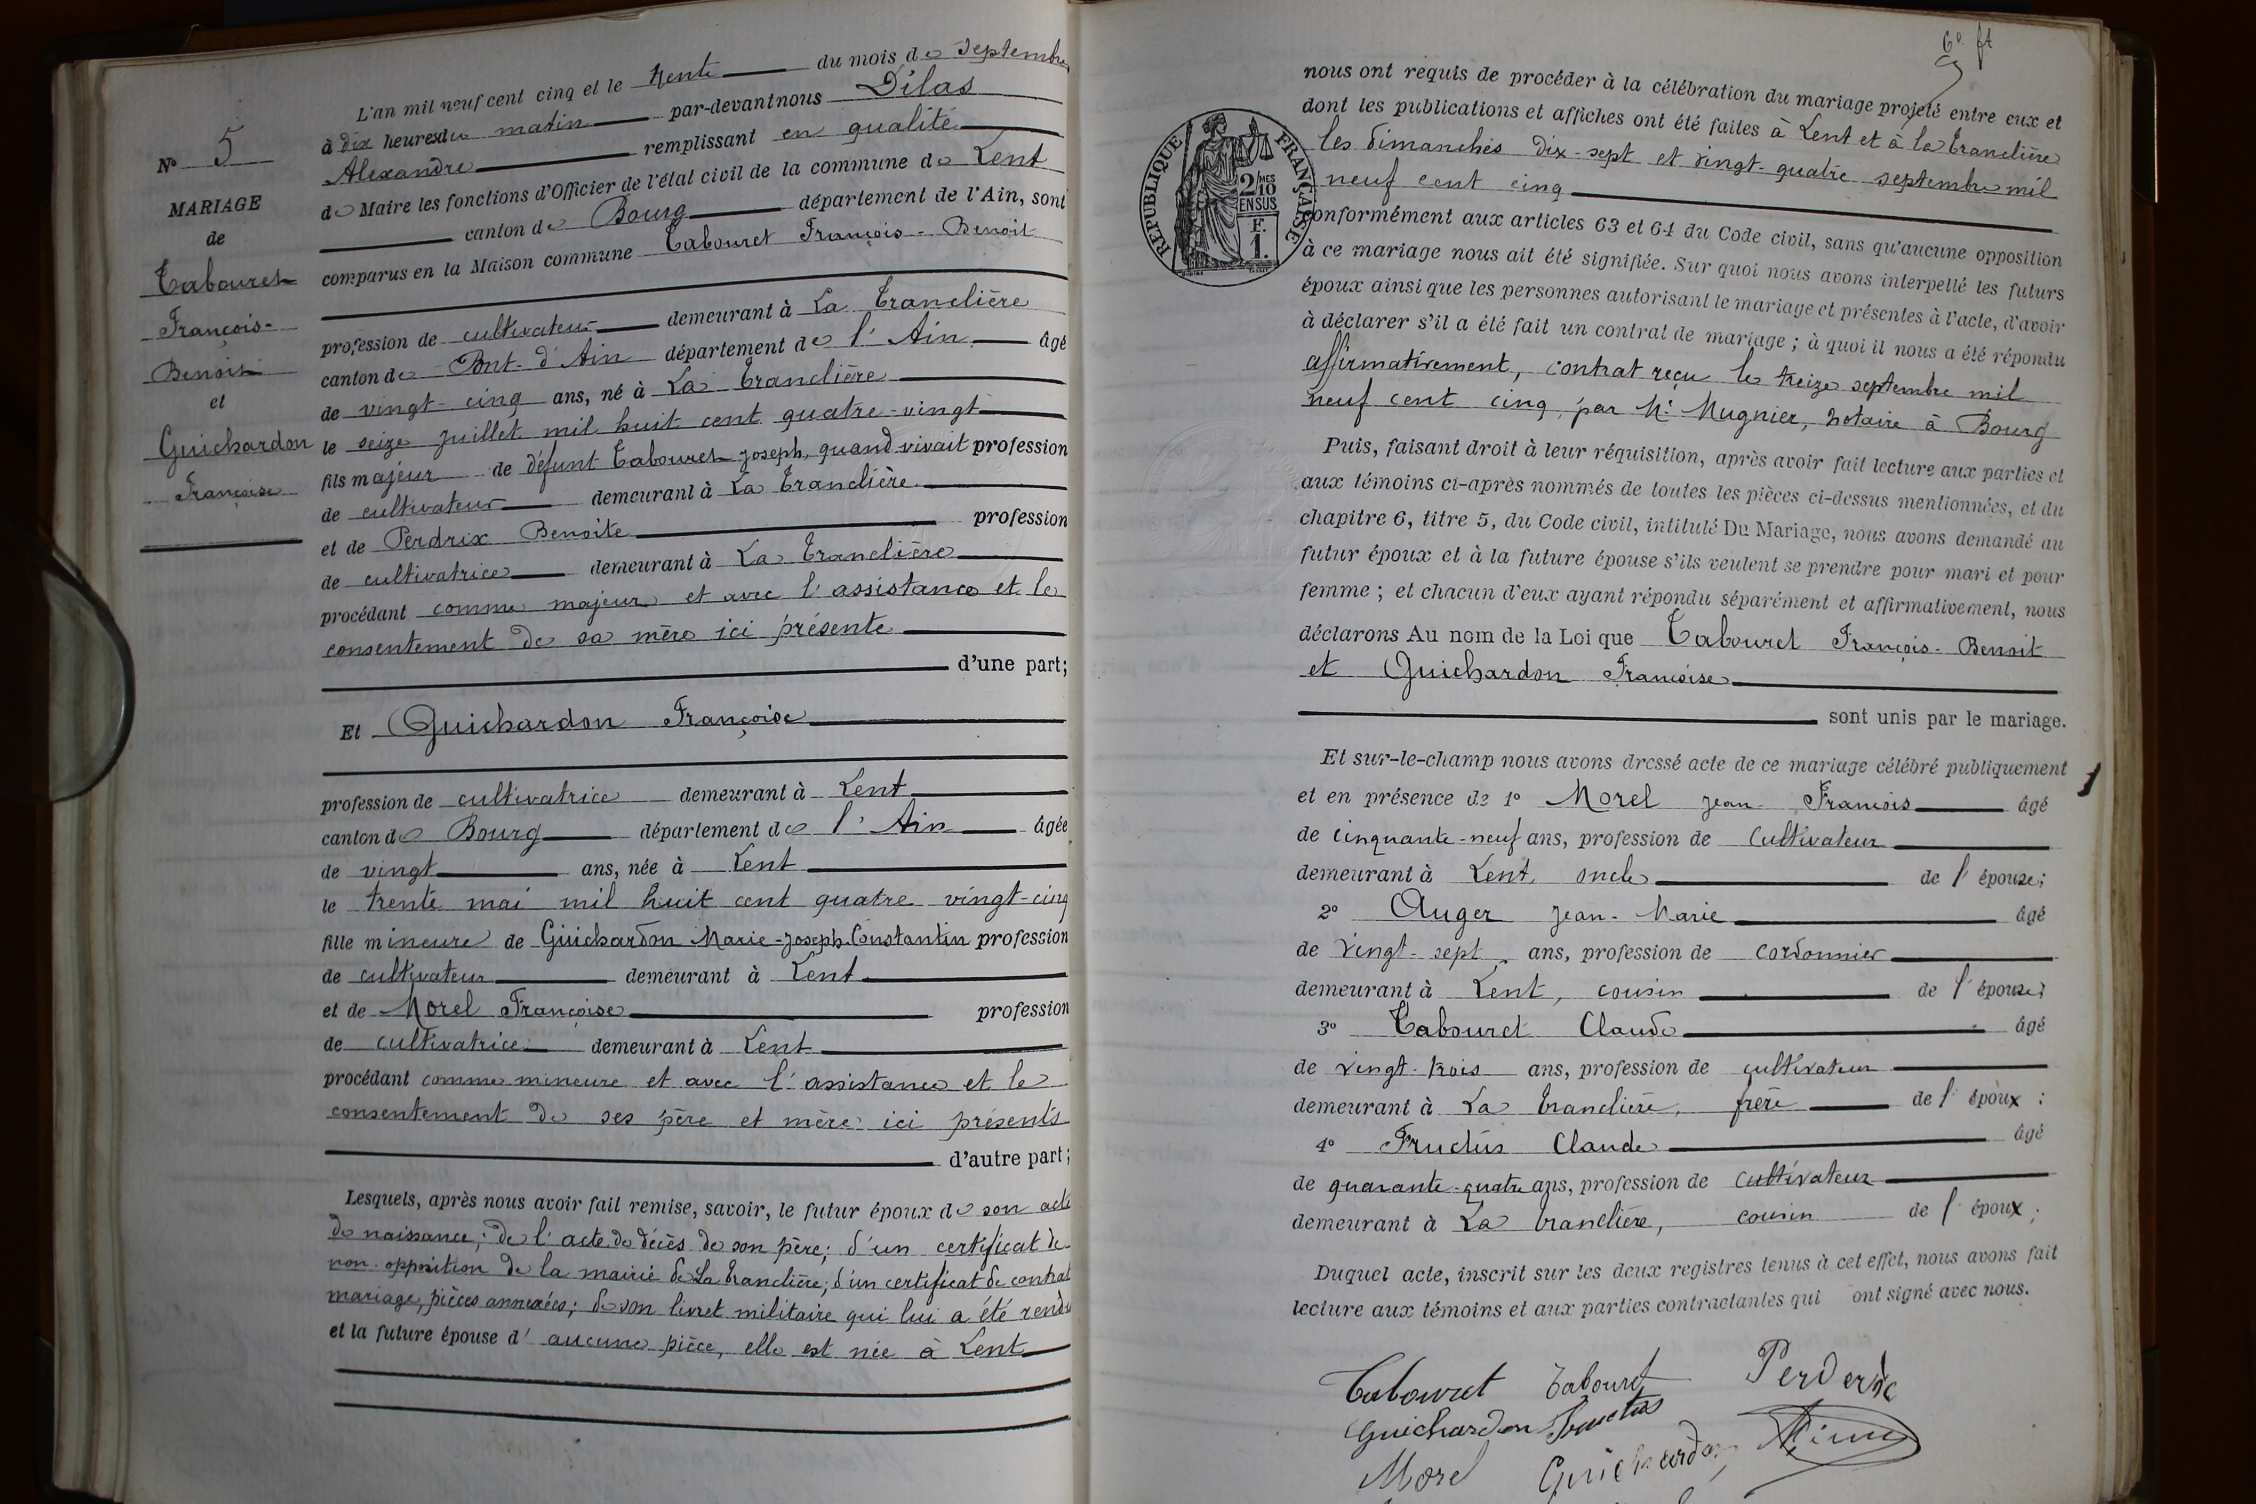 N° 5
MARIAGE
de
Tabouret
François-
Benoit
et
Guichardon
Françoise
L'an mil neuf cent cinq et le trente du mois de Septembre
à dix heures du matin par-devant nous Dilas
Alexandre remplissant en qualité
de Maire les fonctions d'Officier de l'état civil de la commune de Lent
canton de Bourg département de l'Ain, sont
comparus en la Maison commune Tabouret François-Benoit
profession de cultivateur demeurant à La Tranclière
canton de Pont-d'Ain département de l'Ain âgé
de vingt-cinq ans, né à La Tranclière
le seize juillet mil huit cent quatre-vingt
fils majeur de défunt Tabouret Joseph, quand vivait profession
de cultivateur demeurant à La Tranclière
et de Perdrix Benoite profession
de cultivatrice demeurant à La Tranclière
procédant comme majeur et avec l'assistance et le
consentement de sa mère ici présente
d'une part;
Et Guichardon Françoise
profession de cultivatrice demeurant à Lent
canton de Bourg département de l'Ain âgée
de vingt ans, née à Lent
le trente mai mil huit cent quatre vingt-cinq
fille mineure de Guichardon Marie-Joseph-Constantin profession
de cultivateur demeurant à Lent
et de Morel Françoise profession
de cultivatrice demeurant à Lent
procédant comme mineure et avec l'assistance et le
consentement de ses père et mère ici présents
d'autre part;
Lesquels, après nous avoir fait remise, savoir, le futur époux de son acte
de naissance; de l'acte de décès de son père; d'un certificat de
non-opposition de la mairie de La Tranclière; d'un certificat de contrat
mariage, pièces annexées; de son livret militaire qui lui a été rendu
et la future épouse d'aucune pièce, elle est née à Lent
6e ft
nous ont requis de procéder à la célébration du mariage projeté entre eux et
dont les publications et affiches ont été faites à Lent et à la Tranclière
les dimanches dix-sept et vingt-quatre septembre mil
neuf cent cinq
RÉPUBLIQUE FRANÇAISE
2/10 MES
EN SUS
F.
1.
conformément aux articles 63 et 64 du Code civil, sans qu'aucune opposition
à ce mariage nous ait été signifiée. Sur quoi nous avons interpellé les futurs
époux ainsi que les personnes autorisant le mariage et présentes à l'acte, d'avoir
à déclarer s'il a été fait un contrat de mariage; à quoi il nous a été répondu
affirmativement, contrat reçu le treize septembre mil
neuf cent cinq, par Me Mugnier, notaire à Bourg
Puis, faisant droit à leur réquisition, après avoir fait lecture aux parties et
aux témoins ci-après nommés de toutes les pièces ci-dessus mentionnées, et du
chapitre 6, titre 5, du Code civil, intitulé Du Mariage, nous avons demandé au
futur époux et à la future épouse s'ils veulent se prendre pour mari et pour
femme; et chacun d'eux ayant répondu séparément et affirmativement, nous
déclarons Au nom de la Loi que Tabouret François-Benoit
et Guichardon Françoise
sont unis par le mariage.
Et sur-le-champ nous avons dressé acte de ce mariage célébré publiquement
et en présence de 1° Morel Jean-François âgé
de cinquante-neuf ans, profession de cultivateur
demeurant à Lent, oncle de l'épouse;
2° Auger Jean-Marie âgé
de vingt-sept ans, profession de cordonnier
demeurant à Lent, cousin de l'épouse;
3° Tabouret Claude âgé
de vingt-trois ans, profession de cultivateur
demeurant à La Tranclière, frère de l'époux;
4° Fructus Claude âgé
de quarante-quatre ans, profession de cultivateur
demeurant à La Tranclière, cousin de l'époux;
Duquel acte, inscrit sur les deux registres tenus à cet effet, nous avons fait
lecture aux témoins et aux parties contractantes qui ont signé avec nous.
Tabouret Tabouret
Guichardon Fructus
Morel Guichardon